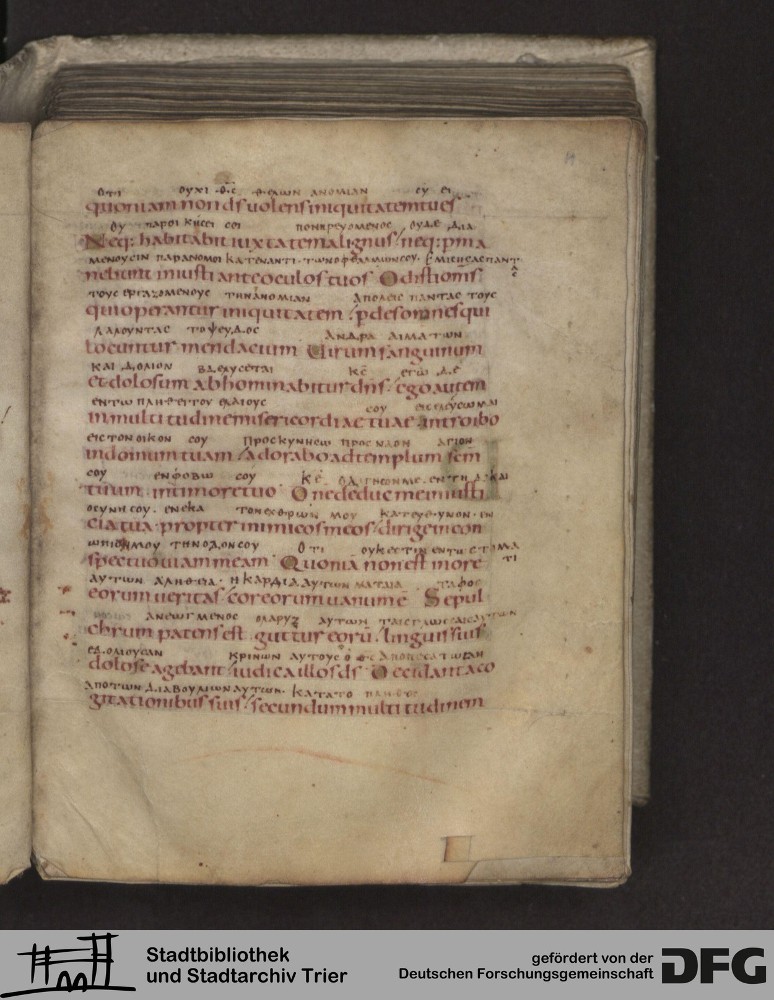 ΟΤΙ ΟΥΧΙ ΘC ΘΕΛωΝ ΑΝΟΜΙΑΝ CΥ ΕΙ
quoniam non ds uolens iniquitatem tu es
ΟΥ ΠΑΡΟΙΚΗCΕΙ COI ΠΟΝΗΡΕΥΟΜΕΝΟC ΟΥΔΕ ΔΙΑ
Neq: habitabit iuxta te malignus / neq: pma
ΜΕΝΟΥCΙΝ ΠΑΡΑΝΟΜΟΙ ΚΑΤΕΝΑΝΤΙ ΤωΝ ΟΦΘΑΛΜωΝ COY ΕΜΙCΗCΑC ΠΑΝΤ
nebunt iniusti ante oculos tuos Odisti omis
ΤΟΥC ΕΡΓΑΖΟΜΕΝΟΥC ΤΗΝ ΑΝΟΜΙΑΝ ΑΠΟΛΕΙC ΠΑΝΤΑC ΤΟΥC
qui operantur iniquitatem / pdes omnes qui
ΛΑΛΟΥΝΤΑC ΤΟ ΨΕΥΔΟC ΑΝΔΡΑ ΑΙΜΑΤωΝ
locuntur mendacium Uirum sanguinum
ΚΑΙ ΔΟΛΙΟΝ ΒΔΕΛΥCΕΤΑΙ ΚC ΕΓω ΔΕ
et dolosum abhominabitur dns / ego autem
ΕΝ Τω ΠΛΗΘΕΙ ΤΟΥ ΕΛΑΙΟΥC COY ΕΙCΕΛΕΥCωΜΑΙ
in multitudine misericordiae tuae introibo
ΕΙC ΤΟΝ ΟΙΚΟΝ COY ΠΡΟCΚΥΝΗCω ΠΡΟC ΝΑΟΝ ΑΓΙΟΝ
in domum tuam / adorabo ad templum scm
COY ΕΝ ΦΟΒω COY ΚΕ ΟΔΗΓΗCΟΝ ΜΕ ΕΝ ΤΗ ΔΙΚΑΙ
tuum in timore tuo One deduc me in iusti
ΟCΥΝΗ COY ΕΝΕΚΑ ΤΟΝ ΕΧΘΡωΝ ΜΟΥ ΚΑΤΕΥΘΥΝΟΝ ΕΝ
cia tua propter inimicos meos / dirige in con
ωΠΙΟΝ ΜΟΥ ΤΗΝ ΟΔΟΝ COY ΟΤΙ ΟΥΚ ΕCΤΙΝ ΕΝ Τω CΤΟΜΑ
spectu o uiam meam Quoniā non est in ore
ΑΥΤωΝ ΑΛΗΘΕΙΑ Η ΚΑΡΔΙΑ ΑΥΤωΝ ΜΑΤΑΙΑ ΤΑΦΟC
eorum ueritas / cor eorum uanum ē Sepul
ΑΝΕωΓΜΕΝΟC Ο ΛΑΡΥΞ ΑΥΤωΝ ΤΑΙC ΓΛωCCΑΙC ΑΥΤωΝ
chrum patens est guttur eorū / linguis suis
ΕΔΟΛΙΟΥCΑΝ ΚΡΙΝΟΝ ΑΥΤΟΥC Ο ΘC ΑΠΟΠΕCΑΤωCΑΝ
dolose agebant / iudica illos ds Decidant a co
ΑΠΟ ΤωΝ ΔΙΑΒΟΥΛΙωΝ ΑΥΤωΝ ΚΑΤΑ ΤΟ ΠΛΗΘΟC
gitationibus suis / secundum multitudinem
Stadtbibliothek
und Stadtarchiv Trier
gefördert von der
Deutschen Forschungsgemeinschaft DFG